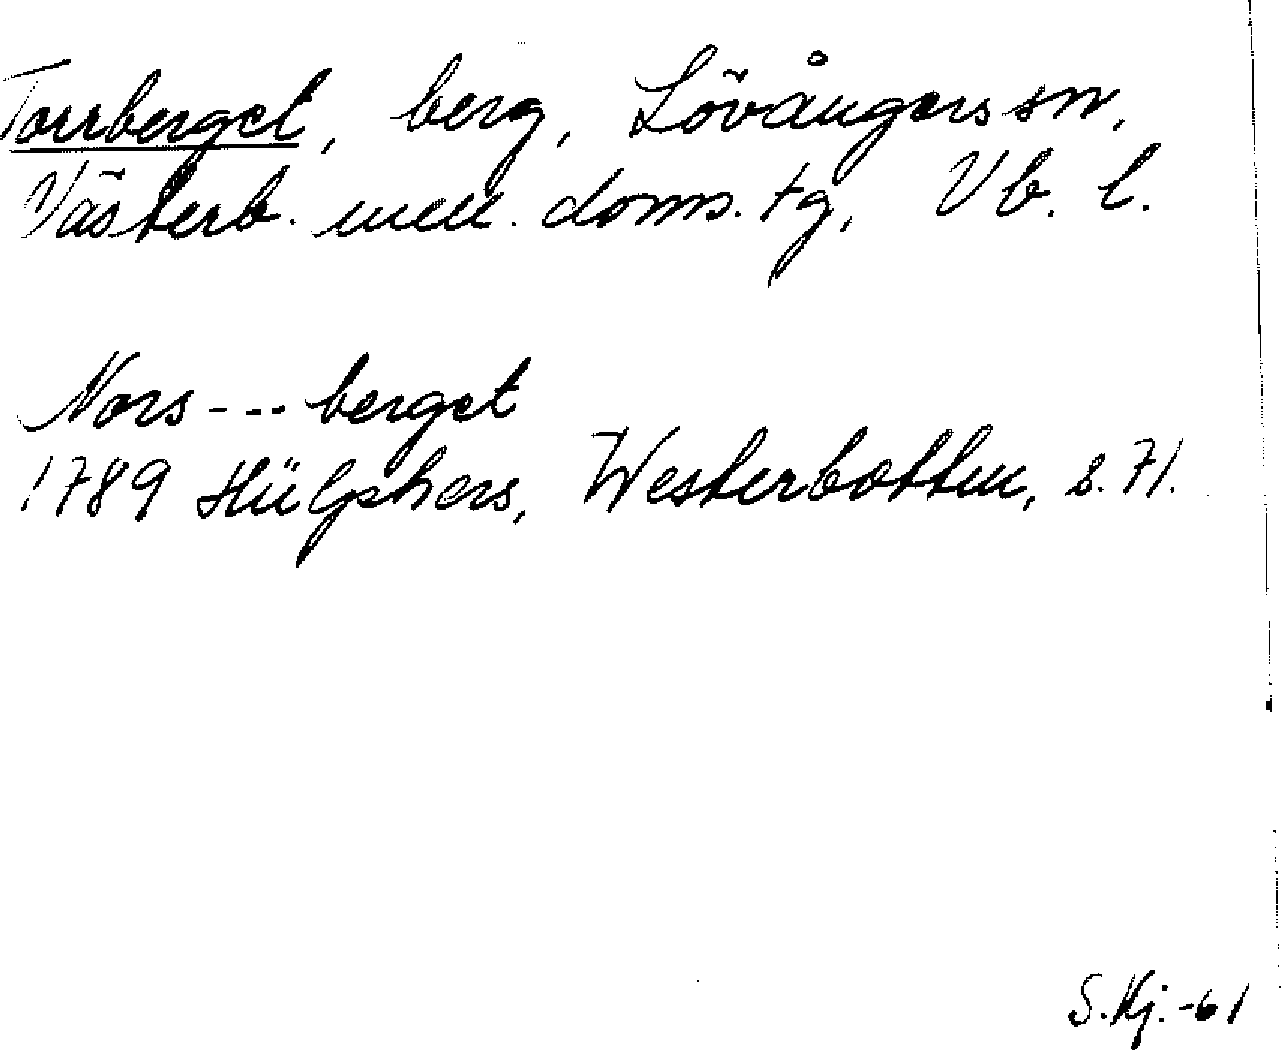 Torrberget, berg, Lövångers sn,
Västerb. mell. doms. tg, Vb. l.
Nors---berget
1789 Hülphers, Westerbotten, s. 71.
S. Kj. -61